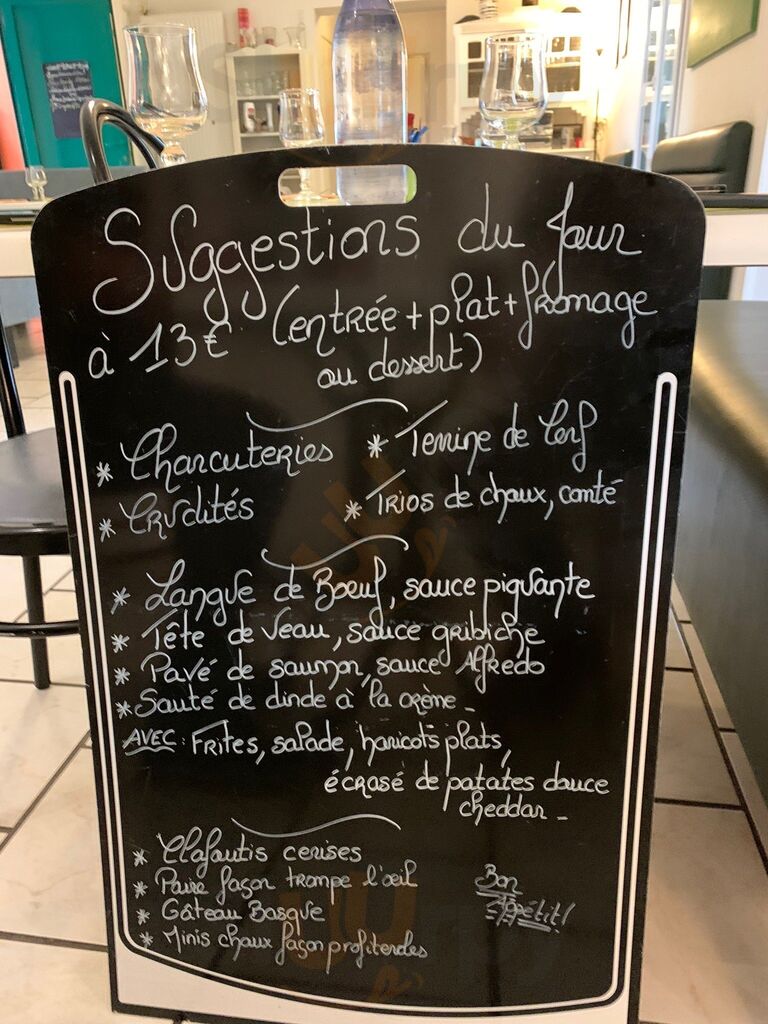 Suggestions du Jour
à 13€ (entrée + plat + fromage
ou dessert)
* Charcuteries * Terrine de Cerf
* Crudités * Trios de choux, comté
* Langue de Boeuf, sauce piquante
* Tête de veau, sauce gribiche
* Pavé de saumon, sauce Alfredo
* Sauté de dinde à la crème -
AVEC : Frites, salade, haricots plats,
écrasé de patates douce
cheddar -
* Clafoutis cerises
* Poire façon trompe l'œil
* Gâteau Basque
* Minis choux façon profiteroles
Bon
Appétit!